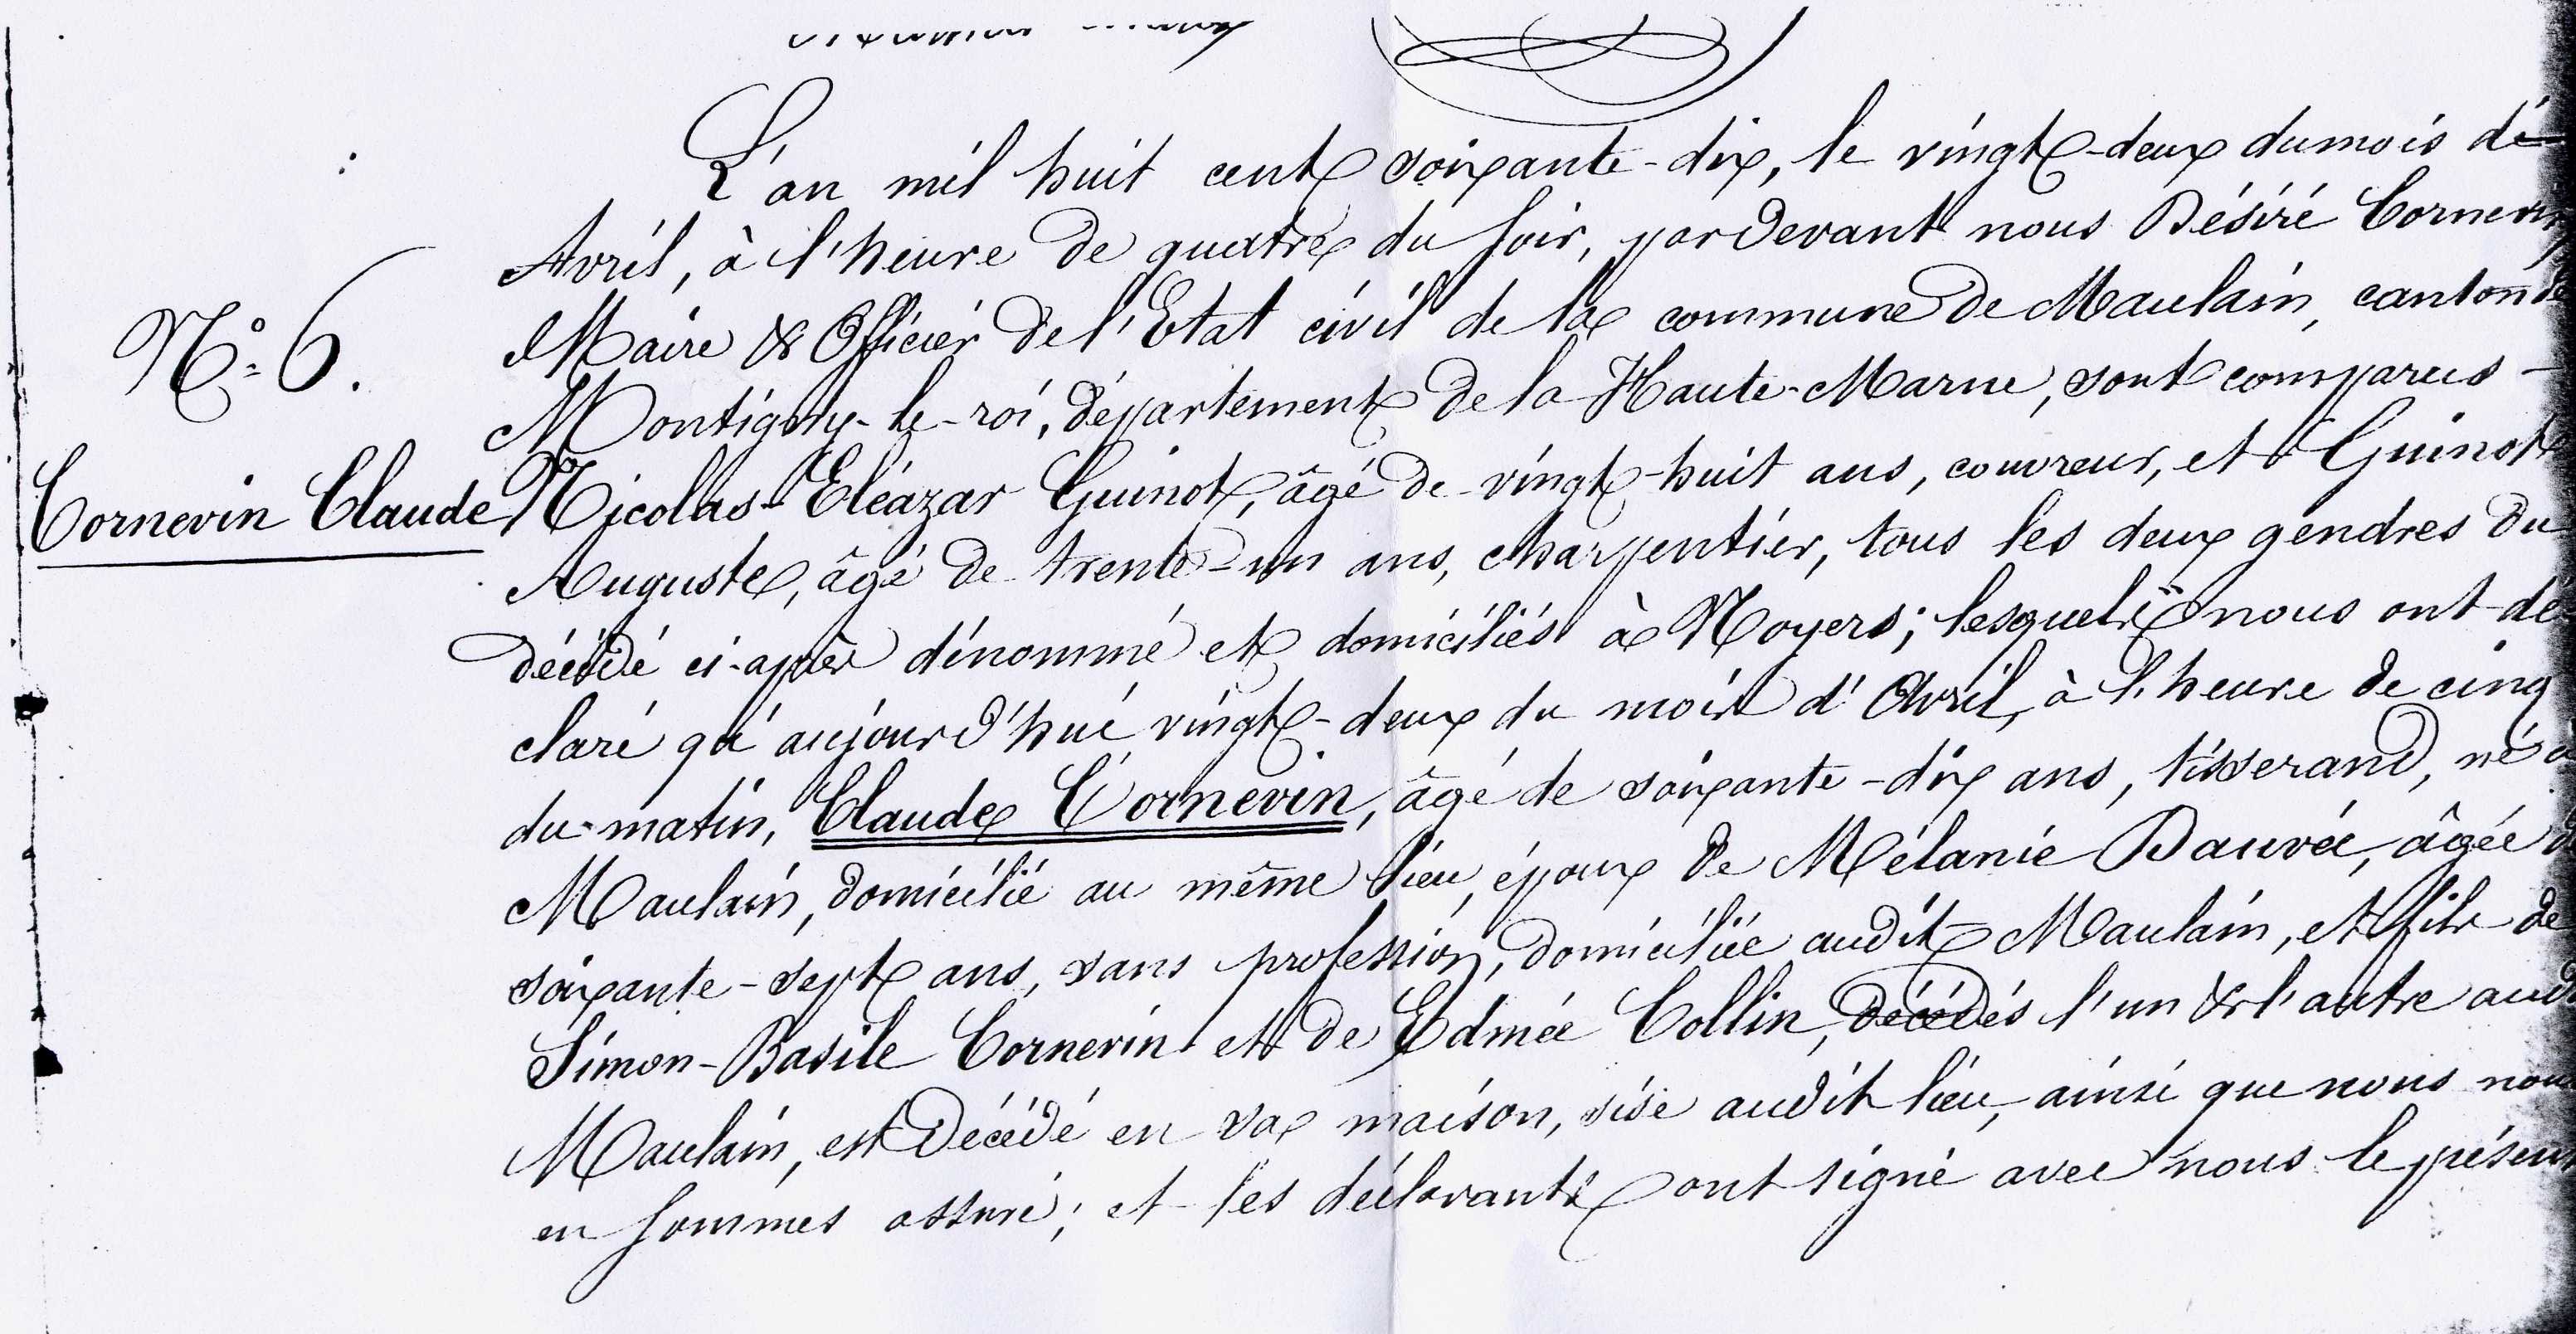 L'an mil huit cent soixante-dix, le vingt-deux du mois de
Avril, à l'heure de quatre du soir, pardevant nous Désiré Cornevin
N° 6.
Maire & Officier de l'Etat civil de la commune de Maulain, canton de
Montigny-le-roi, département de la Haute-Marne, sont comparus -
Cornevin Claude
Nicolas-Eléazar Guinot, âgé de vingt-huit ans, couvreur, et Guinot
Auguste, âgé de trente-un ans, charpentier, tous les deux gendres du
décédé ci-après dénommé et domiciliés à Noyers; lesquels nous ont dé
claré qu'aujourd'hui vingt-deux du mois d'Avril, à l'heure de cinq
du matin, Claude Cornevin, âgé de soixante-dix ans, tisserand, né à
Maulain, domicilié au même lieu, époux de Mélanie Dauvée, âgée de
soixante-sept ans, sans profession, domiciliée audit Maulain, et fils de
Simon-Basile Cornevin et de Edmée Collin, décédés l'un & l'autre aud
Maulain, est décédé en sa maison, sise audit lieu, ainsi que nous nous
en sommes assuré; et les déclarants ont signé avec nous le présent